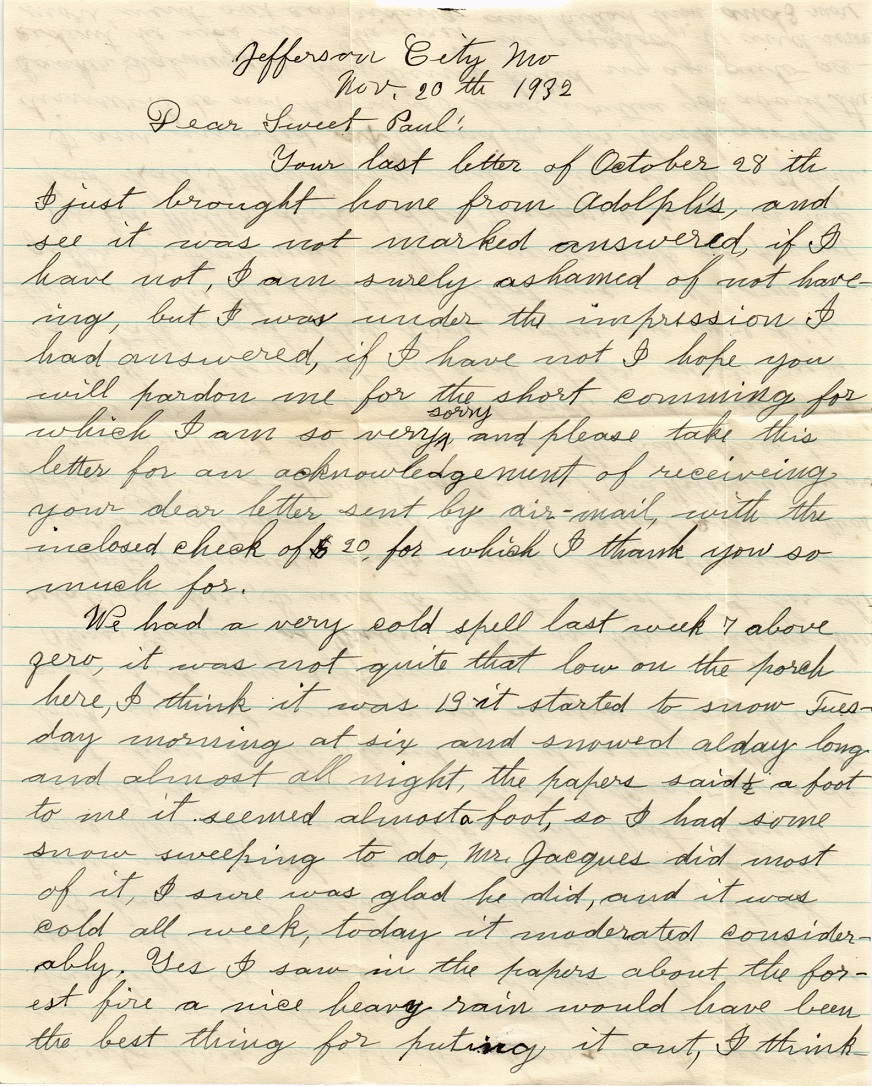 Jefferson City Mo
Nov. 20 th 1932
Dear Sweet Paul:
Your last letter of October 28 th
I just brought home from Adolph's, and
see it was not marked answered, if I
have not, I am surely ashamed of not have-
ing, but I was under the impression I
had answered, if I have not I hope you
will pardon me for the short comming for
sorry
which I am so very ^ and please take this
letter for an acknowledgement of receiveing
your dear letter sent by air-mail, with the
inclosed check of $ 20, for which I thank you so
much for.
We had a very cold spell last week 7 above
zero, it was not quite that low on the porch
here, I think it was 19 it started to snow Tues-
day morning at six and snowed alday long
and almost all night, the papers said ½ a foot
to me it seemed almost a foot, so I had some
snow sweeping to do, Mr. Jacques did most
of it, I sure was glad he did, and it was
cold all week, today it moderated consider-
ably. Yes I saw in the papers about the for-
est fire a nice heavy rain would have been
the best thing for puting it out, I think